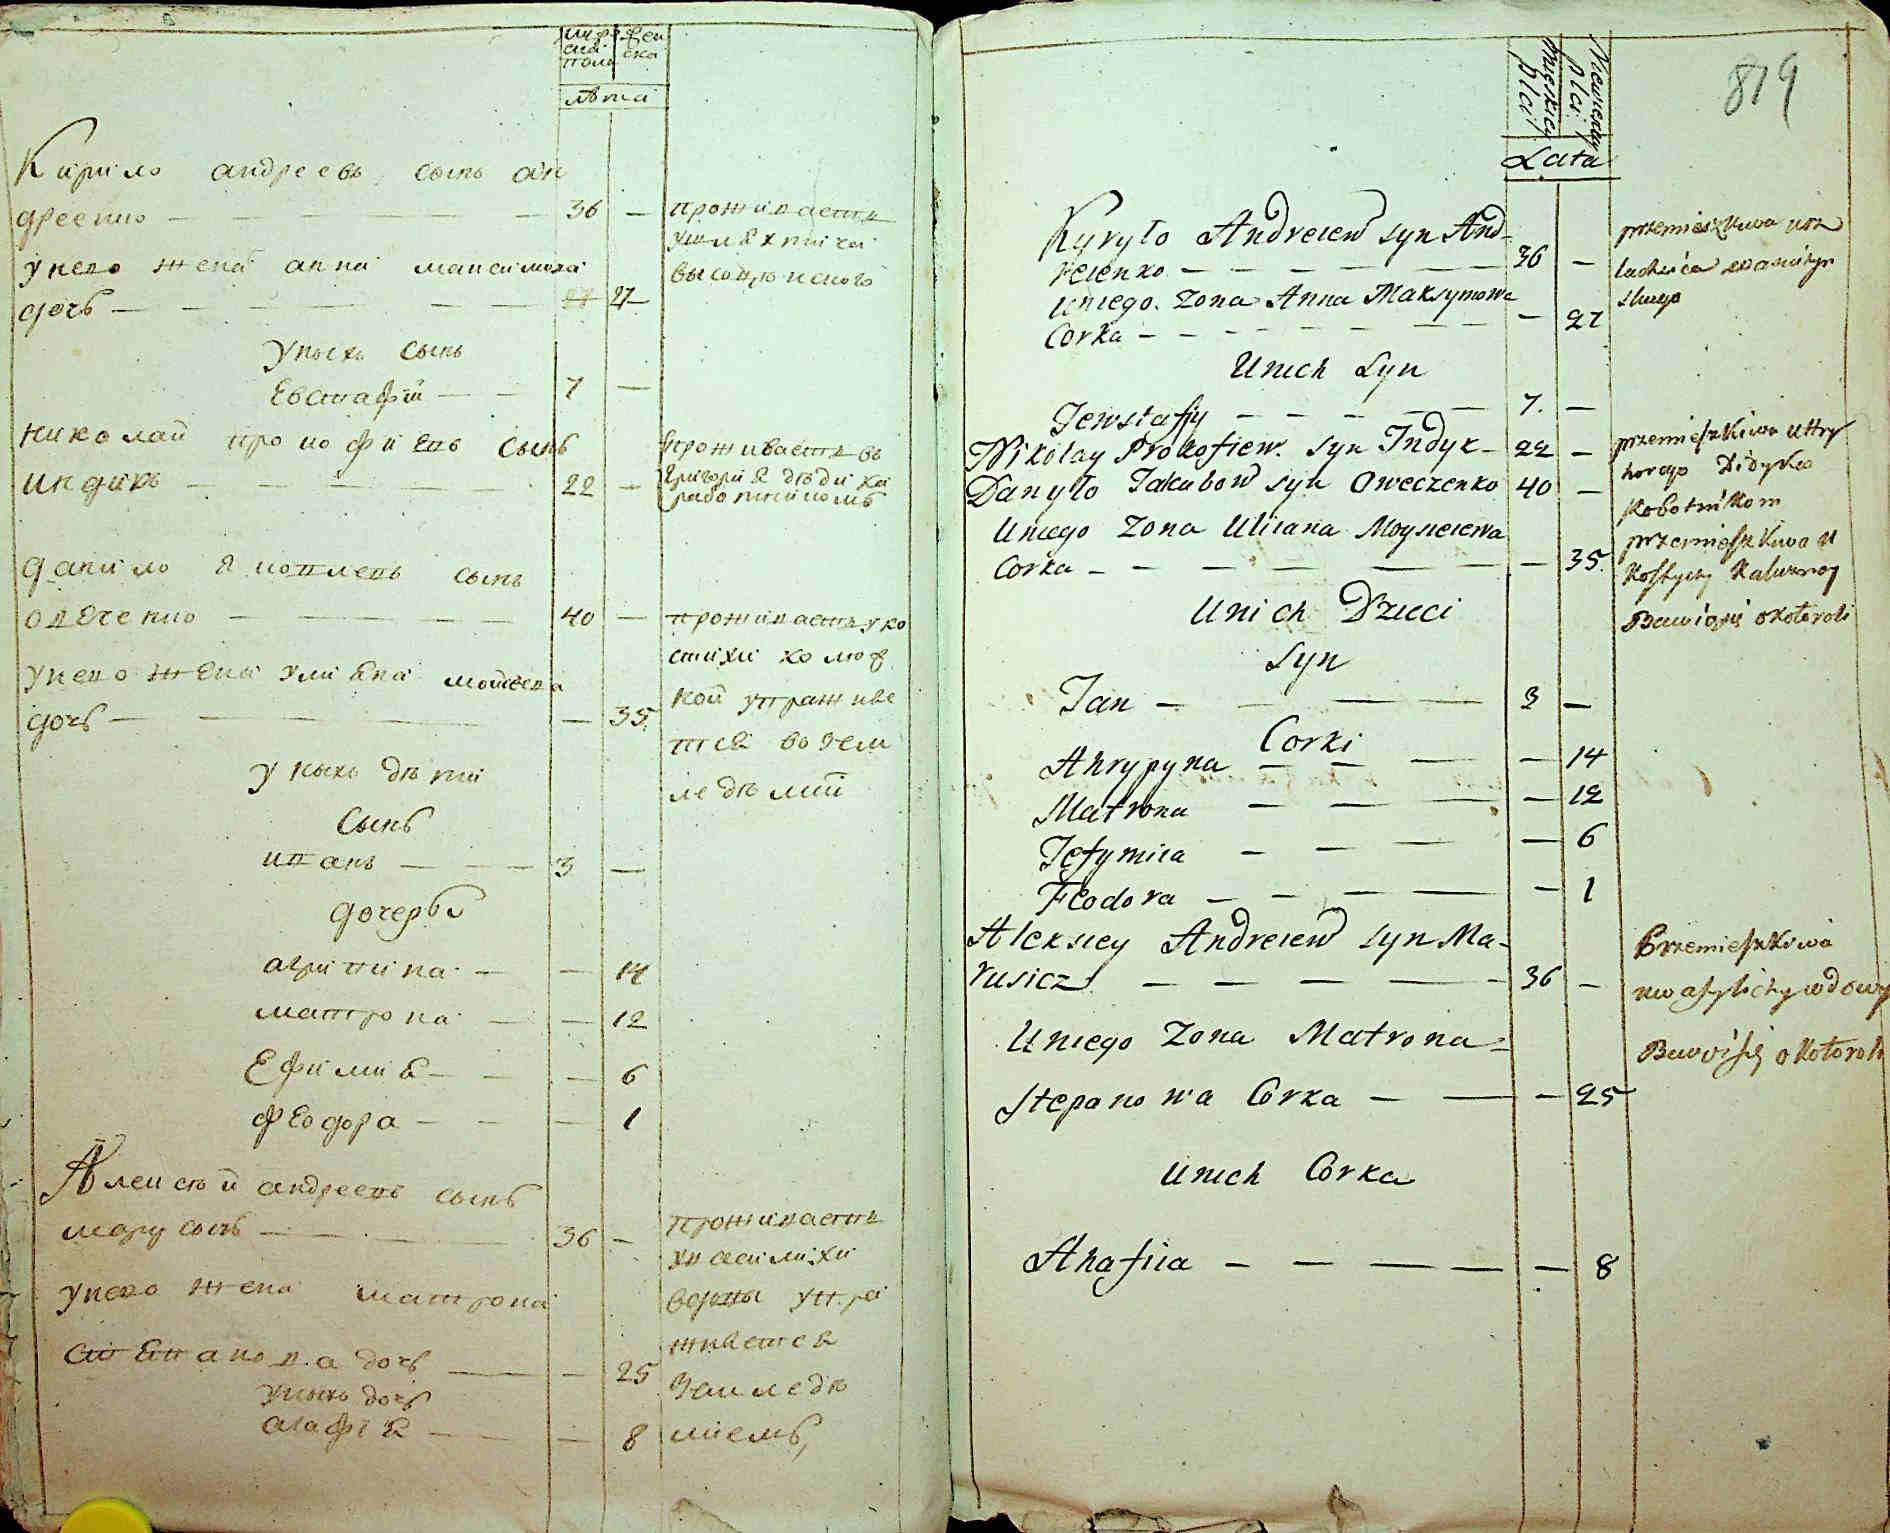 мужеска полу
женска
лѣта
Кирило андреевъ сынъ ан
дреенко — 36 —
проживаетъ
у шляхтича
высоцкого
унего жена анна максимова
дочъ — 27 27
Уныхъ сынъ
Евстафій — 7 —
николай прокофіевъ сынъ
индикъ — 22 —
проживаетъ въ
Григорія дѣдика
работникомъ
данило яковлевъ сынъ
овеченко — 40 —
проживаетъ у ко
стихи
кой упражняе
тся въ зем
ледѣлии
унего жена улияна мойсеева
дочъ — 35
уныхъ дѣти
сынъ
иванъ — 3 —
дочерьи
агрипина — 14
матрона — 12
Ефимия — 6
феодора — 1
Алексѣй андреевъ сынъ
марусичъ — 36 —
проживаетъ
у василихи
вдовы упра
жняется
земледѣ
лиемъ,
унего жена матрона
степанова дочъ — 25
уныхъ дочъ
агафія — 8
819
męskiey płci
żenskiey płci
Lata
Kyryło Andreiew syn And-
reienko — 36 —
przemieszkiwa u szlachcica
sługo
Uniego Zona Anna Maksymowa
Corka — 27
Unich Syn
Jewstafiy — 7. —
Nikołay Prokofiew syn Indyk — 22 —
przemieszkiwa u Hry
horego Didyka
Robotnikom
Danyło Jakubow syn Oweczenko 40 —
Uniego Zona Uliana Moysieiewa
Corka — 35
przemieszkiwa u
Kostychy
Bawi się około roli
Unich Dzieci
Syn
Jan — 3 —
Corki
Ahrypyna — 14
Matrona — 12
Jefymiia — 6
Feodora — 1
Aleksiey Andreiew syn Ma-
rusicz — 36 —
Przemieszkiwa
u Wasylichy wdowy
Bawi się około roli
Uniego Zona Matrona
Stepanowa Corka — 25
Unich Corka
Ahafiia — 8